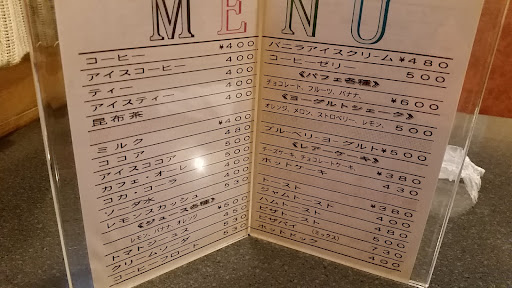 MENU
コーヒー ¥400
アイスコーヒー 400
ティー 400
アイスティー 400
昆布茶 400
ミルク ¥400
ココア 500
アイスココア 500
カフェ・オーレ
コカ・コーラ
ソーダ水
レモンスカッシュ
《ジュース各種》
レモン, バナナ, オレンジ
トマトジュース
クリームソーダ
コーヒーフロート 530
バニラアイスクリーム ¥480
コーヒーゼリー 500
《パフェ各種》
チョコレート、フルーツ、バナナ、 ¥600
《ヨーグルトシェーク》
オレンジ、メロン、ストロベリー、レモン、 500
ブルーベリーヨーグルト ¥500
《レアーケーキ》
チーズケーキ、チョコレートケーキ、 ¥380
ホットケーキ 430
トースト ¥380
ジャムトースト 400
ハムトースト 500
ピザトースト 500
ピザパイ (ミックス) 730
ホットドック 400